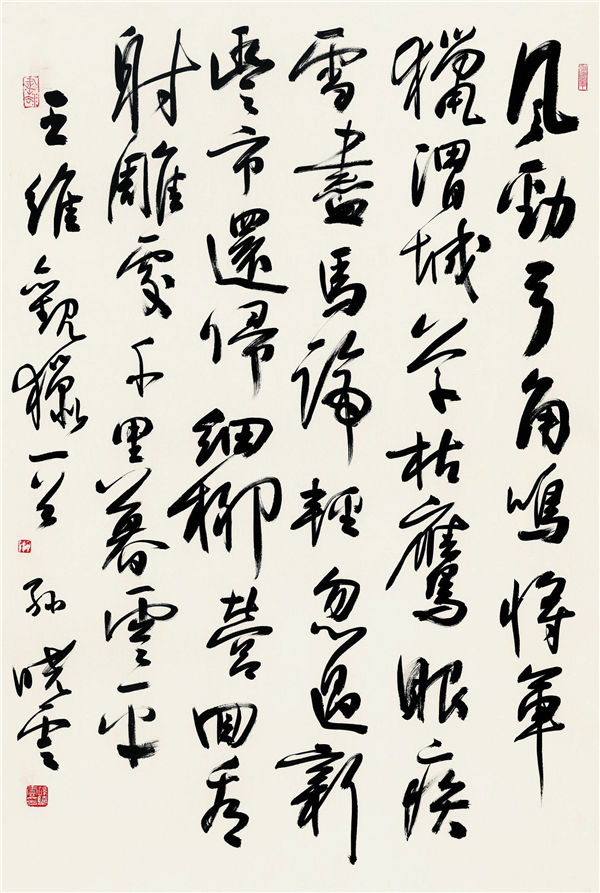 風勁弓角鳴將軍
獵渭城草枯鷹眼疾
雪盡馬蹄輕忽過新
豐市還歸細柳營回看
射雕處千里暮雲平
王維觀獵一首 孫曉雲